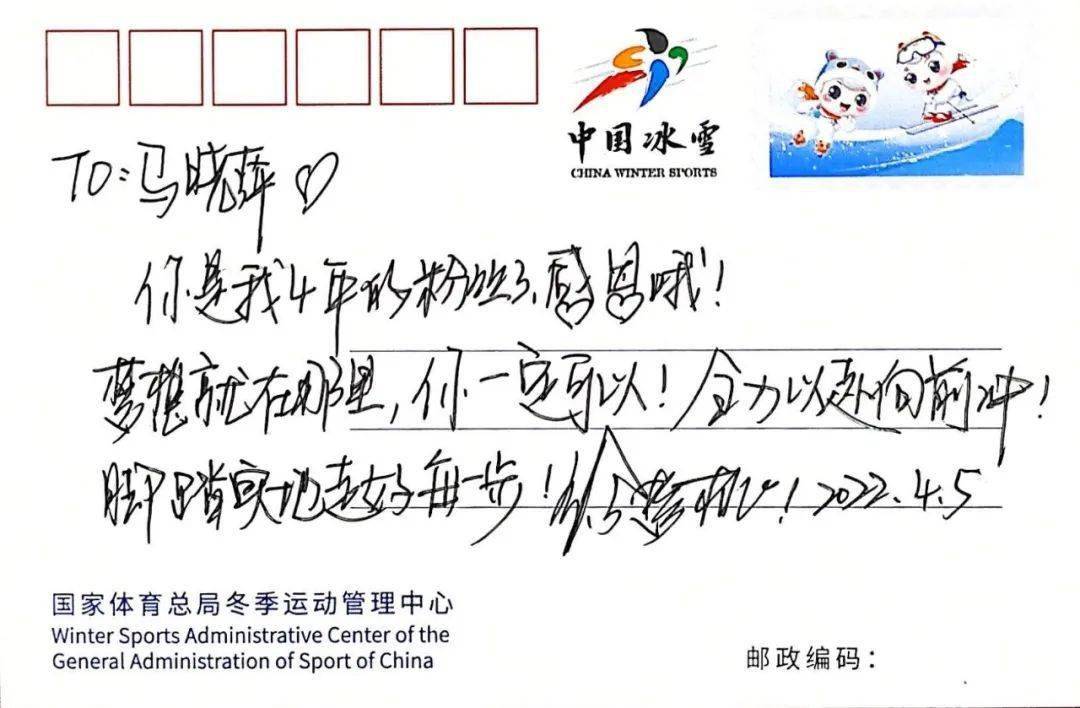 中国冰雪
CHINA WINTER SPORTS
TO:马晓♡
你是我4年的粉丝了、感恩哦!
梦想就在那里,你一定可以!全力以赴向前冲!
脚踏实地走好每一步!徐梦桃!2022.4.5
国家体育总局冬季运动管理中心
Winter Sports Administrative Center of the
General Administration of Sport of China
邮政编码: